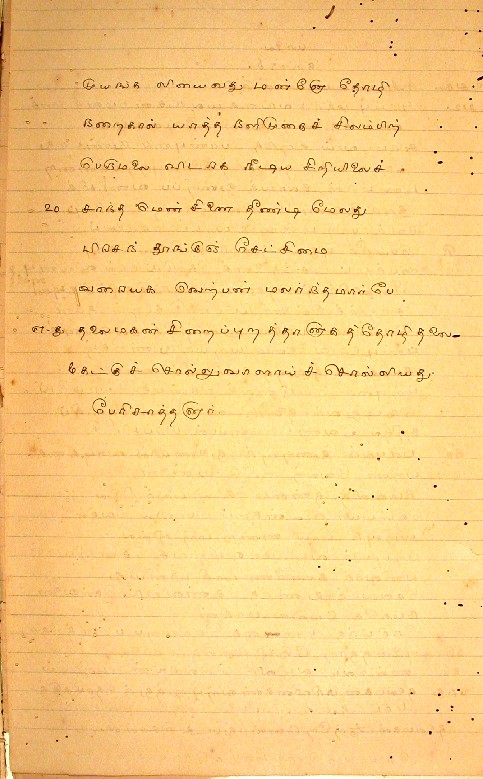 முயங்க லியைவது மன்னோ தோழி
நறைகால் யாத்த நளிமுகைச் சிலம்பிற்
பெருமலை விடரக நீடிய சிறியிலைச்
20 சாந்த மென்சினை தீண்டி மேலது
பிரசந் தூங்குஞ் சேட்சிமை
வரையக வெற்பன் மலர்ந்தமார்பே
எ-து தலைமகன் சிறைப்புறத்தானாகத் தோழி தலை-
கேட்குச் சொல்லுவாளாய்ச் சொல்லியது
பேரிசாத்தனார்